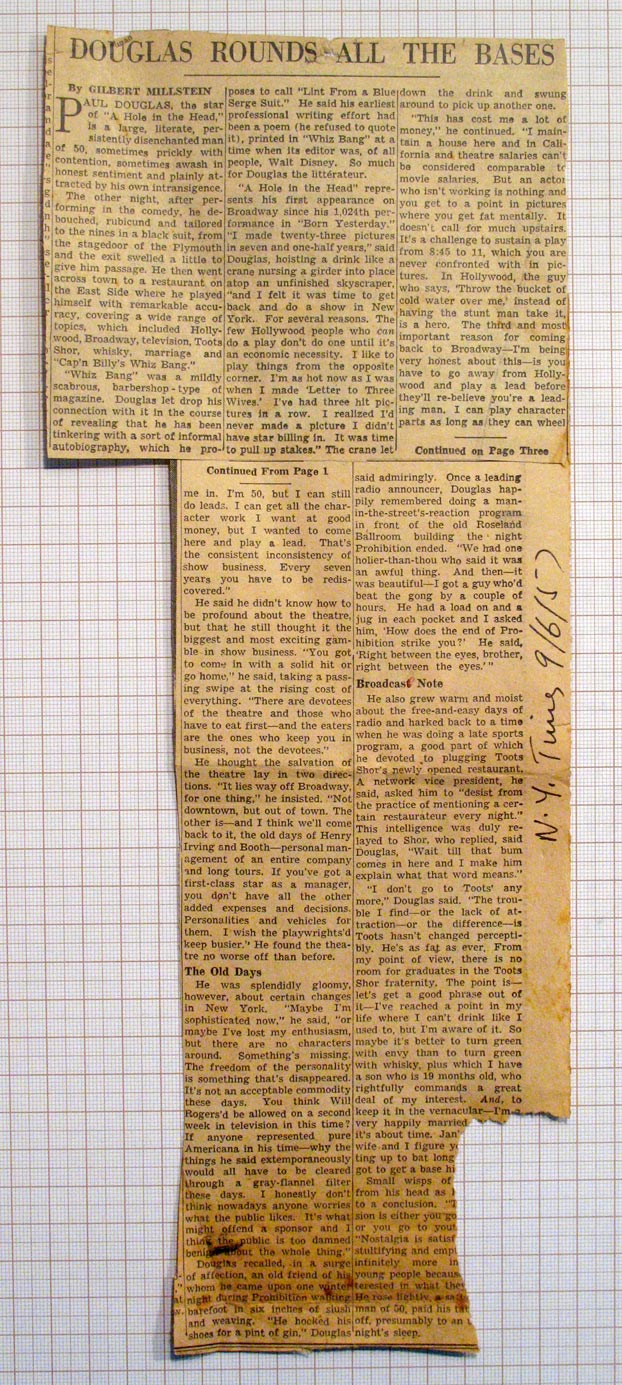 DOUGLAS ROUNDS ALL THE BASES
By GILBERT MILLSTEIN
PAUL DOUGLAS, the star
of "A Hole in the Head,"
is a large, literate, per-
sistently disenchanted man
of 50, sometimes prickly with
contention, sometimes awash in
honest sentiment and plainly at-
tracted by his own intransigence.
The other night, after per-
forming in the comedy, he de-
bouched, rubicund and tailored
to the nines in a black suit, from
the stagedoor of the Plymouth
and the exit swelled a little to
give him passage. He then went
across town to a restaurant on
the East Side where he played
himself with remarkable accu-
racy, covering a wide range of
topics, which included Holly-
wood, Broadway, television, Toots
Shor, whisky, marriage and
"Cap'n Billy's Whiz Bang."
"Whiz Bang" was a mildly
scabrous, barbershop-type of
magazine. Douglas let drop his
connection with it in the course
of revealing that he has been
tinkering with a sort of informal
autobiography, which he pro-
poses to call "Lint From a Blue
Serge Suit." He said his earliest
professional writing effort had
been a poem (he refused to quote
it), printed in "Whiz Bang" at a
time when its editor was, of all
people, Walt Disney. So much
for Douglas the littérateur.
"A Hole in the Head" repre-
sents his first appearance on
Broadway since his 1,024th per-
formance in "Born Yesterday."
"I made twenty-three pictures
in seven and one-half years," said
Douglas, hoisting a drink like a
crane nursing a girder into place
atop an unfinished skyscraper,
"and I felt it was time to get
back and do a show in New
York. For several reasons. The
few Hollywood people who can
do a play don't do one until it's
an economic necessity. I like to
play things from the opposite
corner. I'm as hot now as I was
when I made 'Letter to Three
Wives.' I've had three hit pic-
tures in a row. I realized I'd
never made a picture I didn't
have star billing in. It was time
to pull up stakes." The crane let
down the drink and swung
around to pick up another one.
"This has cost me a lot of
money," he continued. "I main-
tain a house here and in Cali-
fornia and theatre salaries can't
be considered comparable to
movie salaries. But an actor
who isn't working is nothing and
you get to a point in pictures
where you get fat mentally. It
doesn't call for much upstairs.
It's a challenge to sustain a play
from 8:45 to 11, which you are
never confronted with in pic-
tures. In Hollywood, the guy
who says, 'Throw the bucket of
cold water over me,' instead of
having the stunt man take it,
is a hero. The third and most
important reason for coming
back to Broadway—I'm being
very honest about this—is you
have to go away from Holly-
wood and play a lead before
they'll re-believe you're a lead-
ing man. I can play character
parts as long as they can wheel
Continued on Page Three
Continued From Page 1
me in. I'm 50, but I can still
do leads. I can get all the char-
acter work I want at good
money, but I wanted to come
here and play a lead. That's
the consistent inconsistency of
show business. Every seven
years you have to be redis-
covered."
He said he didn't know how to
be profound about the theatre,
but that he still thought it the
biggest and most exciting gam-
ble in show business. "You got
to come in with a solid hit or
go home," he said, taking a pass-
ing swipe at the rising cost of
everything. "There are devotees
of the theatre and those who
have to eat first—and the eaters
are the ones who keep you in
business, not the devotees."
He thought the salvation of
the theatre lay in two direc-
tions. "It lies way off Broadway,
for one thing," he insisted. "Not
downtown, but out of town. The
other is—and I think we'll come
back to it, the old days of Henry
Irving and Booth—personal man-
agement of an entire company
and long tours. If you've got a
first-class star as a manager,
you don't have all the other
added expenses and decisions.
Personalities and vehicles for
them. I wish the playwrights'd
keep busier." He found the thea-
tre no worse off than before.
The Old Days
He was splendidly gloomy,
however, about certain changes
in New York. "Maybe I'm
sophisticated now," he said, "or
maybe I've lost my enthusiasm,
but there are no characters
around. Something's missing.
The freedom of the personality
is something that's disappeared.
It's not an acceptable commodity
these days. You think Will
Rogers'd be allowed on a second
week in television in this time?
If anyone represented pure
Americana in his time—why the
things he said extemporaneously
would all have to be cleared
through a gray-flannel filter
these days. I honestly don't
think nowadays anyone worries
what the public likes. It's what
might offend a sponsor and I
think the public is too damned
benign about the whole thing."
Douglas recalled, in a surge
of affection, an old friend of his
whom he came upon one winter
night during Prohibition walking
barefoot in six inches of slush
and weaving. "He hocked his
shoes for a pint of gin," Douglas
said admiringly. Once a leading
radio announcer, Douglas hap-
pily remembered doing a man-
in-the-street's-reaction program
in front of the old Roseland
Ballroom building the night
Prohibition ended. "We had one
holier-than-thou who said it was
an awful thing. And then—it
was beautiful—I got a guy who'd
beat the gong by a couple of
hours. He had a load on and a
jug in each pocket and I asked
him, 'How does the end of Pro-
hibition strike you?' He said,
'Right between the eyes, brother,
right between the eyes.'"
Broadcast Note
He also grew warm and moist
about the free-and-easy days of
radio and harked back to a time
when he was doing a late sports
program, a good part of which
he devoted to plugging Toots
Shor's newly opened restaurant.
A network vice president, he
said, asked him to "desist from
the practice of mentioning a cer-
tain restaurateur every night."
This intelligence was duly re-
layed to Shor, who replied, said
Douglas, "Wait till that bum
comes in here and I make him
explain what that word means."
"I don't go to Toots' any
more," Douglas said. "The trou-
ble I find—or the lack of at-
traction—or the difference—is
Toots hasn't changed percepti-
bly. He's as fat as ever. From
my point of view, there is no
room for graduates in the Toots
Shor fraternity. The point is—
let's get a good phrase out of
it—I've reached a point in my
life where I can't drink like I
used to, but I'm aware of it. So
maybe it's better to turn green
with envy than to turn green
with whisky, plus which I have
a son who is 19 months old, who
rightfully commands a great
deal of my interest. And, to
keep it in the vernacular—I'm a
very happily married
it's about time. Jan'
wife and I figure y
ting up to bat long
got to get a base hi
Small wisps of
from his head as
to a conclusion.
sion is either you go
or you go to your
"Nostalgia is satisf
stultifying and emp
infinitely more in
young people becaus
terested in what the
He rose lightly, a
man of 50, paid his
off, presumably to an
night's sleep.
N.Y. Times 9/6/57